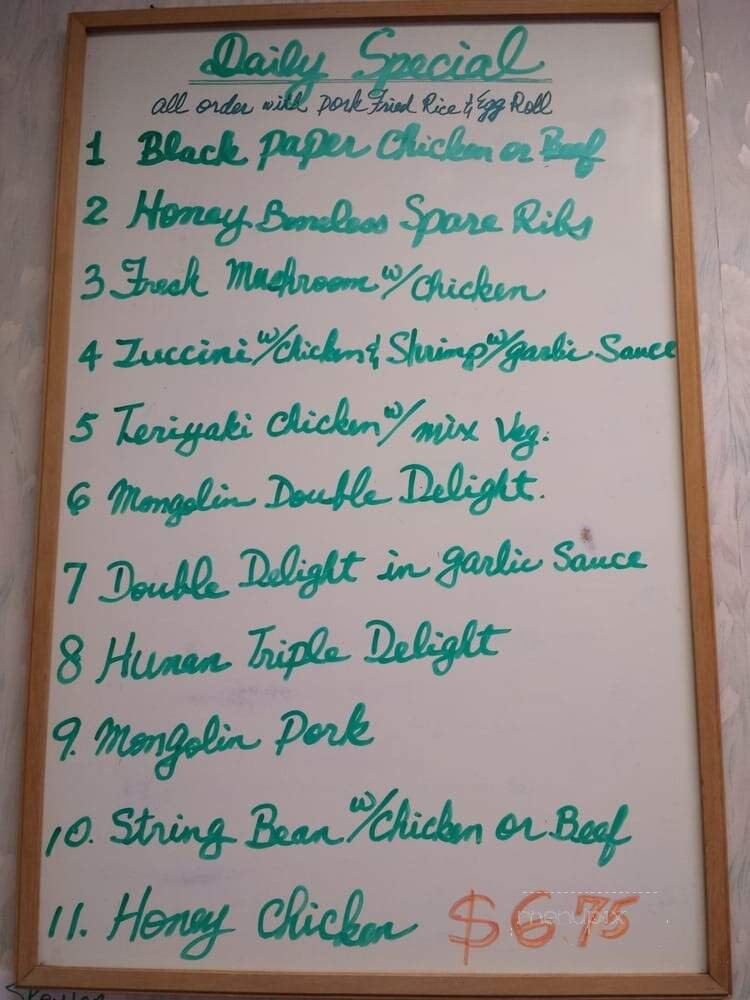 Daily Special
all order with Pork Fried Rice & Egg Roll
1 Black Paper Chicken or Beef
2 Honey Boneless Spare Ribs
3 Fresh Mushroom w/ Chicken
4 Zuccini w/ Chicken & Shrimp w/ garlic Sauce
5 Teriyaki Chicken w/ mix Veg.
6 Mongolin Double Delight.
7 Double Delight in garlic Sauce
8 Hunan Triple Delight
9. Mongolin Pork
10. String Bean w/ Chicken or Beef
11. Honey Chicken $6.75
menupix